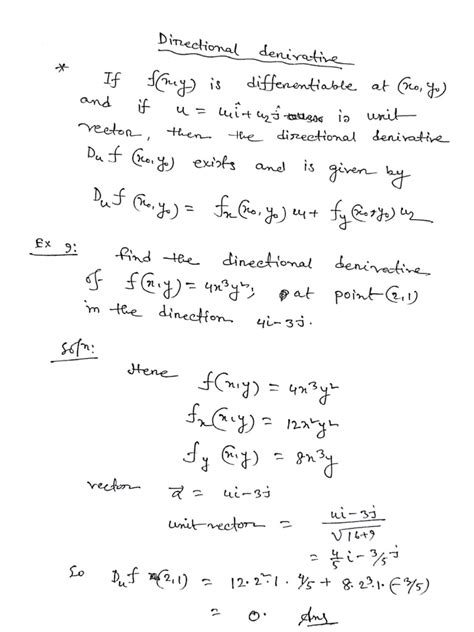 Directional derivative
* If f(x,y) is differentiable at (x₀,y₀)
and if u = u₁î+u₂ĵ is unit
vector, then the directional derivative
Duf (x₀,y₀) exists and is given by
Duf (x₀,y₀) = fx(x₀,y₀)u₁ + fy(x₀,y₀)u₂
Ex 9: Find the directional derivative
of f(x,y) = 4x³y², at point (2,1)
in the direction 4i-3j.
Soln:
Here f(x,y) = 4x³y²
fx(x,y) = 12x²y²
fy (x,y) = 8x³y
vector a⃗ = 4i-3j
unit vector = (4i-3j)/√(16+9)
= 4/5 i - 3/5 j
So Duf (2,1) = 12·2²·1·4/5 + 8·2³·1·(-3/5)
= 0. Ans